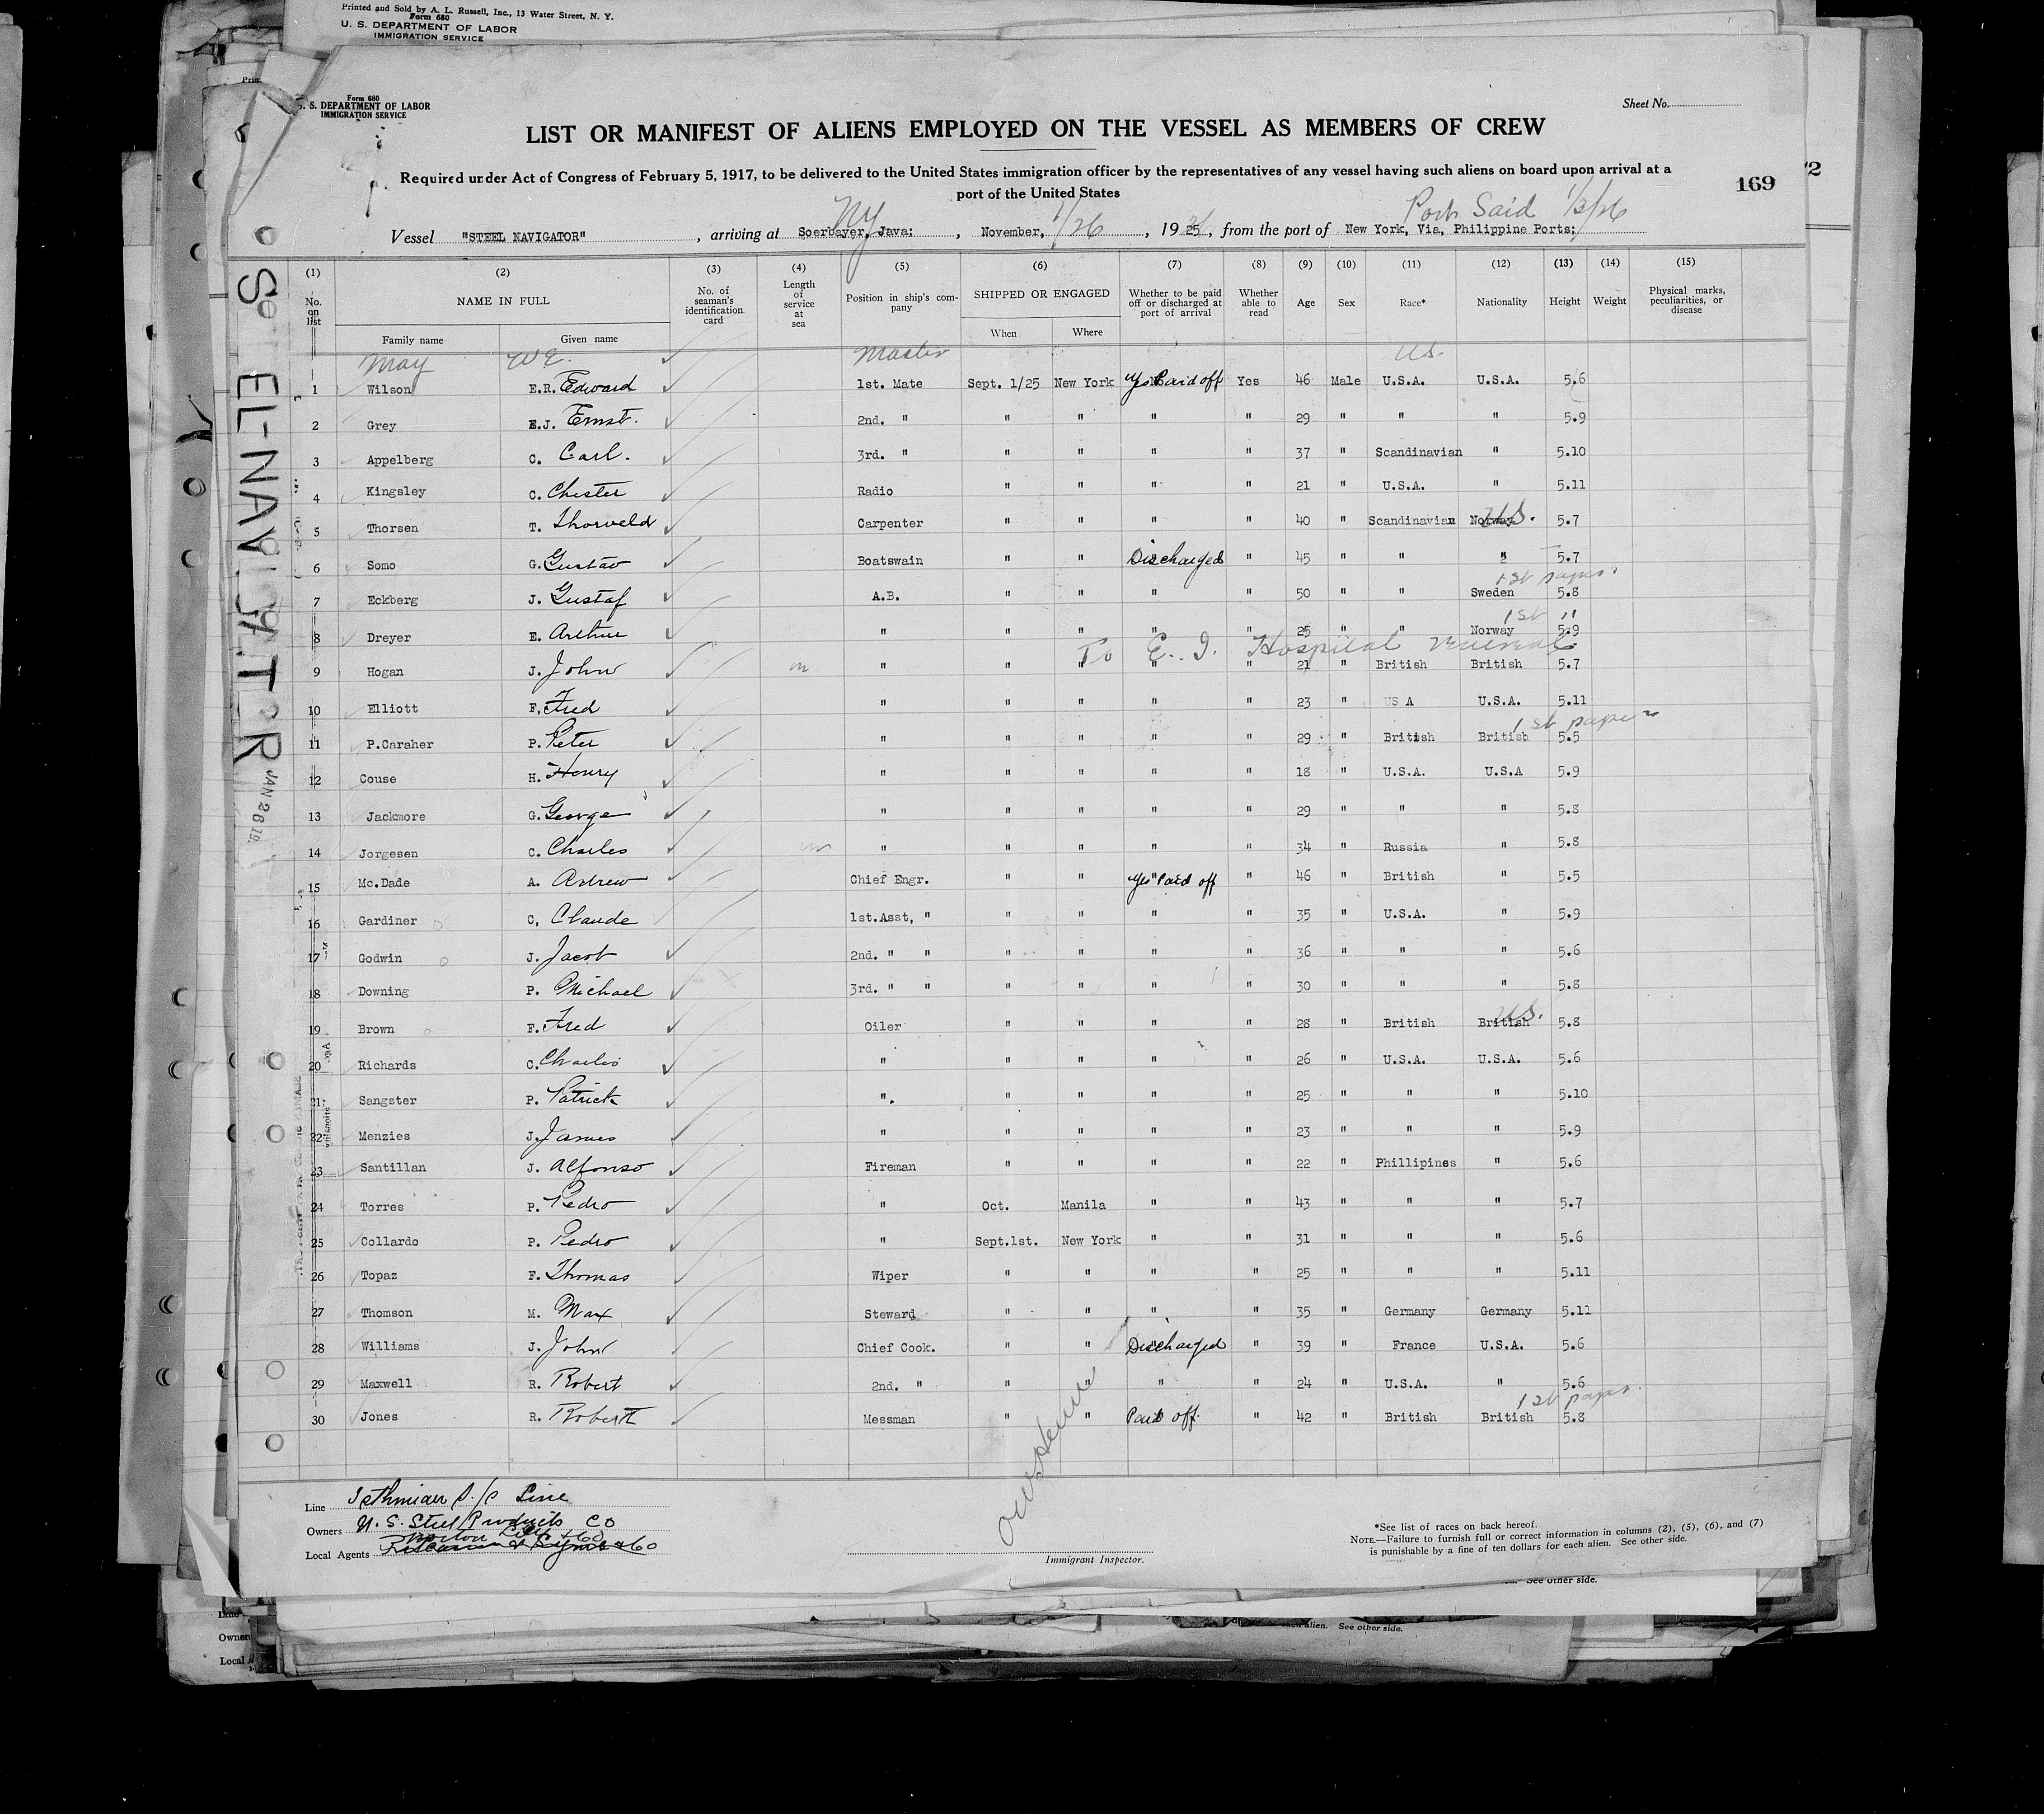 Printed and Sold by A. L. Russell, Inc., 13 Water Street, N. Y.
Form 680
U. S. DEPARTMENT OF LABOR
IMMIGRATION SERVICE
Form 680
S. DEPARTMENT OF LABOR
IMMIGRATION SERVICE
Sheet No.
LIST OR MANIFEST OF ALIENS EMPLOYED ON THE VESSEL AS MEMBERS OF CREW
Required under Act of Congress of February 5, 1917, to be delivered to the United States immigration officer by the representatives of any vessel having such aliens on board upon arrival at a
port of the United States
169
NY 1/26 Port Said 1/2/26
Vessel "STEEL NAVIGATOR" , arriving at Soerbayer, Java; , November, , 1925, from the port of New York, Via, Philippine Ports;
(1) (2) (3) (4) (5) (6) (7) (8) (9) (10) (11) (12) (13) (14) (15)
No. on list NAME IN FULL Family name Given name No. of seaman's identification card Length of service at sea Position in ship's company SHIPPED OR ENGAGED When Where Whether to be paid off or discharged at port of arrival Whether able to read Age Sex Race* Nationality Height Weight Physical marks, peculiarities, or disease
May W E. Master U.S.
1 Wilson E.R. Edward 1st. Mate Sept. 1/25 New York Yes Paid off Yes 46 Male U.S.A. U.S.A. 5.6
2 Grey E.J. Ernst. 2nd. " " " " " 29 " " " 5.9
3 Appelberg C. Carl. 3rd. " " " " " 37 " Scandinavian " 5.10
4 Kingsley C. Chester Radio " " " " 21 " U.S.A. " 5.11
5 Thorsen T. Thorveld Carpenter " " " " 40 " Scandinavian Norway U.S. 5.7
6 Somo G. Gustav Boatswain " " Discharged " 45 " " " 5.7
1st papers
7 Eckberg J. Gustaf A.B. " " " " 50 " " Sweden 5.8
1st "
8 Dreyer E. Arthur " " " " " 25 " " Norway 5.9
To E. I. Hospital
9 Hogan J. John " " " " " 21 " British British 5.7
10 Elliott F. Fred " " " " " 23 " US A U.S.A. 5.11
1st papers
11 P.Caraher P. Peter " " " " " 29 " British British 5.5
12 Couse H. Henry " " " " " 18 " U.S.A. U.S.A 5.9
13 Jackmore G. George " " " " " 29 " " " 5.8
14 Jorgesen C. Charles " " " " " 34 " Russia " 5.8
15 Mc.Dade A. Andrew Chief Engr. " " Yes Paid off " 46 " British " 5.5
16 Gardiner C, Claude 1st.Asst, " " " " " 35 " U.S.A. " 5.9
17 Godwin J. Jacob 2nd. " " " " " " 36 " " " 5.6
18 Downing P. Michael 3rd. " " " " " " 30 " " " 5.8
19 Brown F. Fred Oiler " " " " 28 " British British U.S. 5.8
20 Richards C. Charles " " " " " 26 " U.S.A. U.S.A. 5.6
21 Sangster P. Patrick " " " " " 25 " " " 5.10
22 Menzies J. James " " " " " 23 " " " 5.9
23 Santillan J. Alfonso Fireman " " " " 22 " Phillipines " 5.6
24 Torres P. Pedro " Oct. Manila " " 43 " " " 5.7
25 Collardo P. Pedro " Sept.1st. New York " " 31 " " " 5.6
26 Topaz F. Thomas Wiper " " " " 25 " " " 5.11
27 Thomson M. Max Steward " " " " 35 " Germany Germany 5.11
28 Williams J. John Chief Cook. " " Discharged " 39 " France U.S.A. 5.6
29 Maxwell R. Robert 2nd. " " " " " 24 " U.S.A. " 5.6
1st papers.
30 Jones R. Robert Messman " " Paid off. " 42 " British British 5.8
Line Isthmian S/S Line
Owners U. S. Steel Products Co
Local Agents Norton Lilly & Co
Immigrant Inspector.
*See list of races on back hereof.
NOTE.—Failure to furnish full or correct information in columns (2), (5), (6), and (7)
is punishable by a fine of ten dollars for each alien. See other side.
See other side.
each alien. See other side.
JAN 26 19